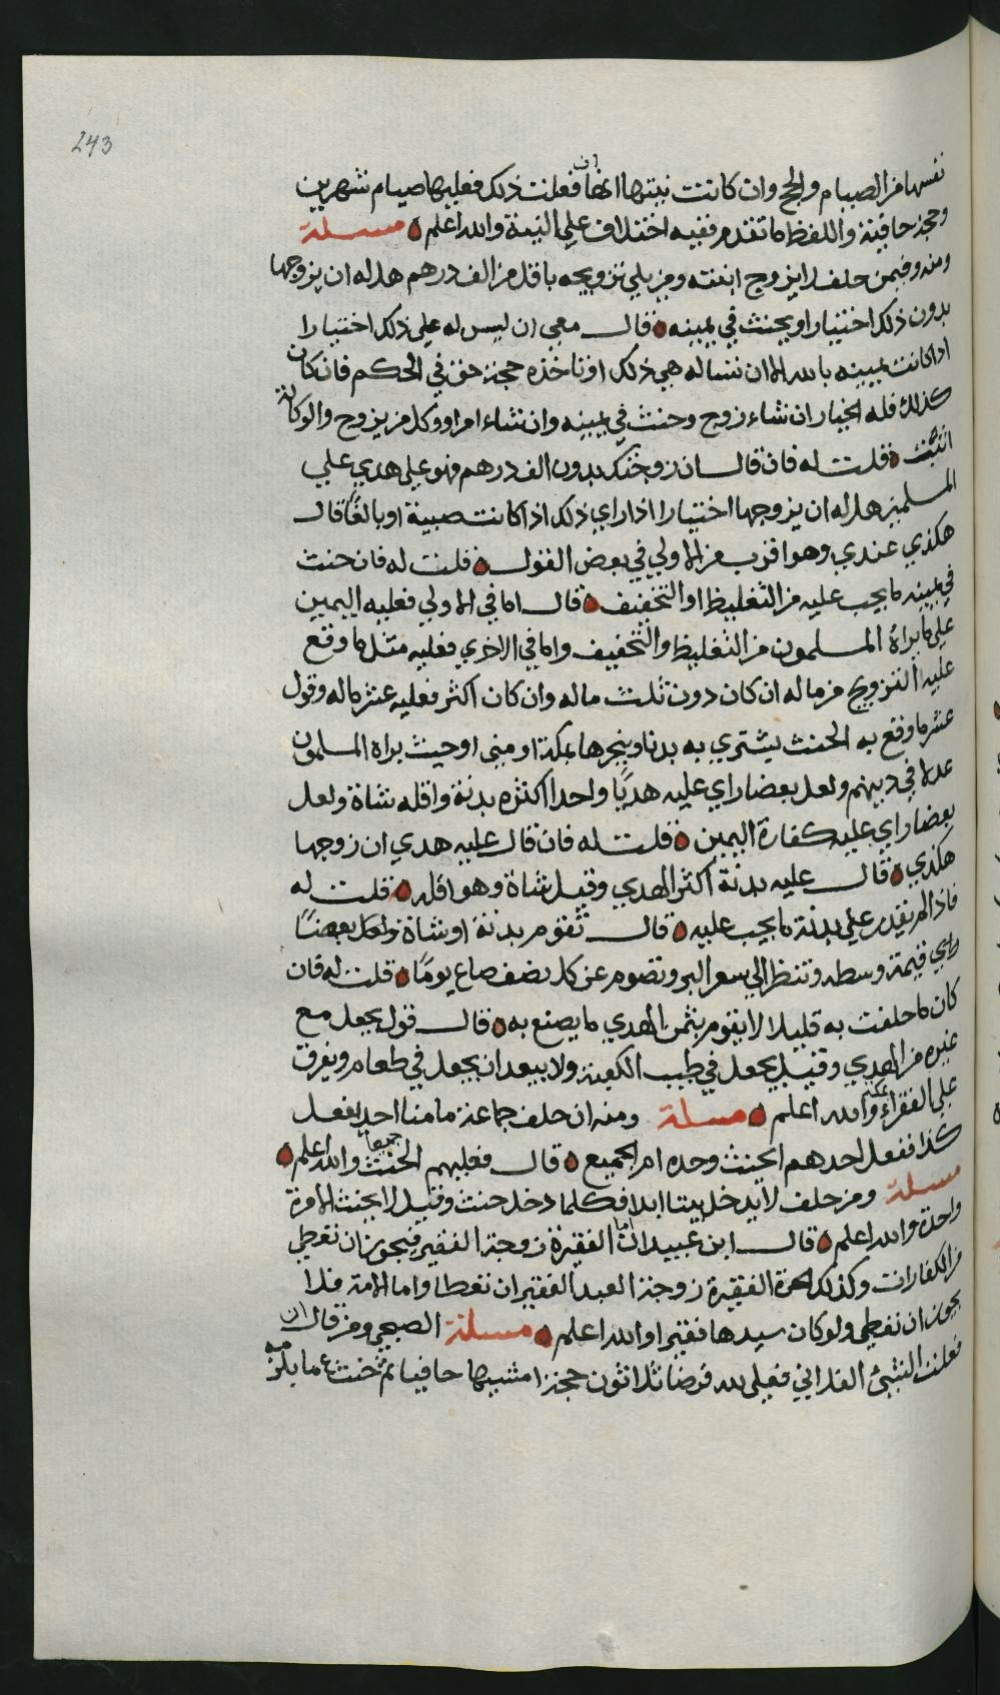 243
نفسها من الصيام والحج وان كانت نيتها انها ان فعلت ذلك فعليها صيام شهرين
وحجة حافية واللفظ ما تقدم ففيه اختلاف على النية والله اعلم مسلة
ومنه وفيمن حلف لا يزوج ابنته ومن يلي تزويجه باقل من الف درهم هل له ان يزوجها
بدون ذلك اختيارا ويحنث في يمينه قال معي ان ليس له على ذلك اختيارا
اذا كانت يمينه بالله الا ان نساله هي ذلك او تاخذه حجة حق في الحكم فان كان
كذلك فله الخيار ان شاء زوج وحنث في يمينه وان شاء امر او وكل من يزوج والوكالة
اثبت قلت له فان قال ان زوجتك بدون الف درهم فهو علي هدي علي
المسلمين هل له ان يزوجها اختيارا اذا راي ذلك اذا كانت صبية او بالغا قال
هكذي عندي وهو اقرب من الاولي في بعض القول قلت له فان حنث
في يمينه ما يجب عليه من التغليظ او التخفيف قال اما في الاولي فعليه اليمين
على ما يراه المسلمون من التغليظ والتخفيف واما في الاخري فعليه مثل ما وقع
عليه التزويج من ماله ان كان دون ثلث ماله وان كان اكثر فعليه عشر ماله وقول
عشر ما وقع به الحنث يشتري به بدنا وينحرها بمكة او منى او حيث يراه المسلمون
عدلا في دينهم ولعل بعضا راي عليه هديا واحدا اكثره بدنة واقله شاة ولعل
بعضا راي عليه كفارة اليمين قلت له فان قال عليه هدي ان زوجها
هكذي قال عليه بدنة اكثر الهدي وقيل شاة وهو اقله قلت له
فاذا لم يقدر على بدنة ما يجب عليه قال تقوم بدنة او شاة ولعل بعضا
راي قيمة وسطه وتنظر الي سعر البر وتصوم عن كل نصف صاع يوما قلت له فان
كان ما حلفت به قليلا لا يقوم بثمن الهدي ما يصنع به قال قول يجعل مع
غيره من الهدي وقيل يجعل في طيب الكعبة ولا يبعد ان يجعل في طعام ويفرق
على الفقراء بمكة والله اعلم مسلة ومنه ان حلف جماعة ما منا احد يفعل
كذا ففعل احدهم ايحنث وحده ام الجميع قال فعليهم الحنث جميعا والله اعلم
مسلة ومن حلف لا يدخل بيتا ابدا فكلما دخل حنث وقيل لا يحنث الا مرة
واحدة والله اعلم قال ابن عبيدان اما الفقيرة زوجة الفقير فيجوز ان تعطي
من الكفارات وكذلك الحرة الفقيرة زوجة العبد الفقير ان تعطا واما الامة فلا
يجوز ان تعطي ولو كان سيدها فقيرا والله اعلم مسلة الصبحي ومن قال ان
فعلت الشئ الفلاني فعلي لله فرضا ثلاثون حجة امشيها حافيا ثم حنث ما يلزمه